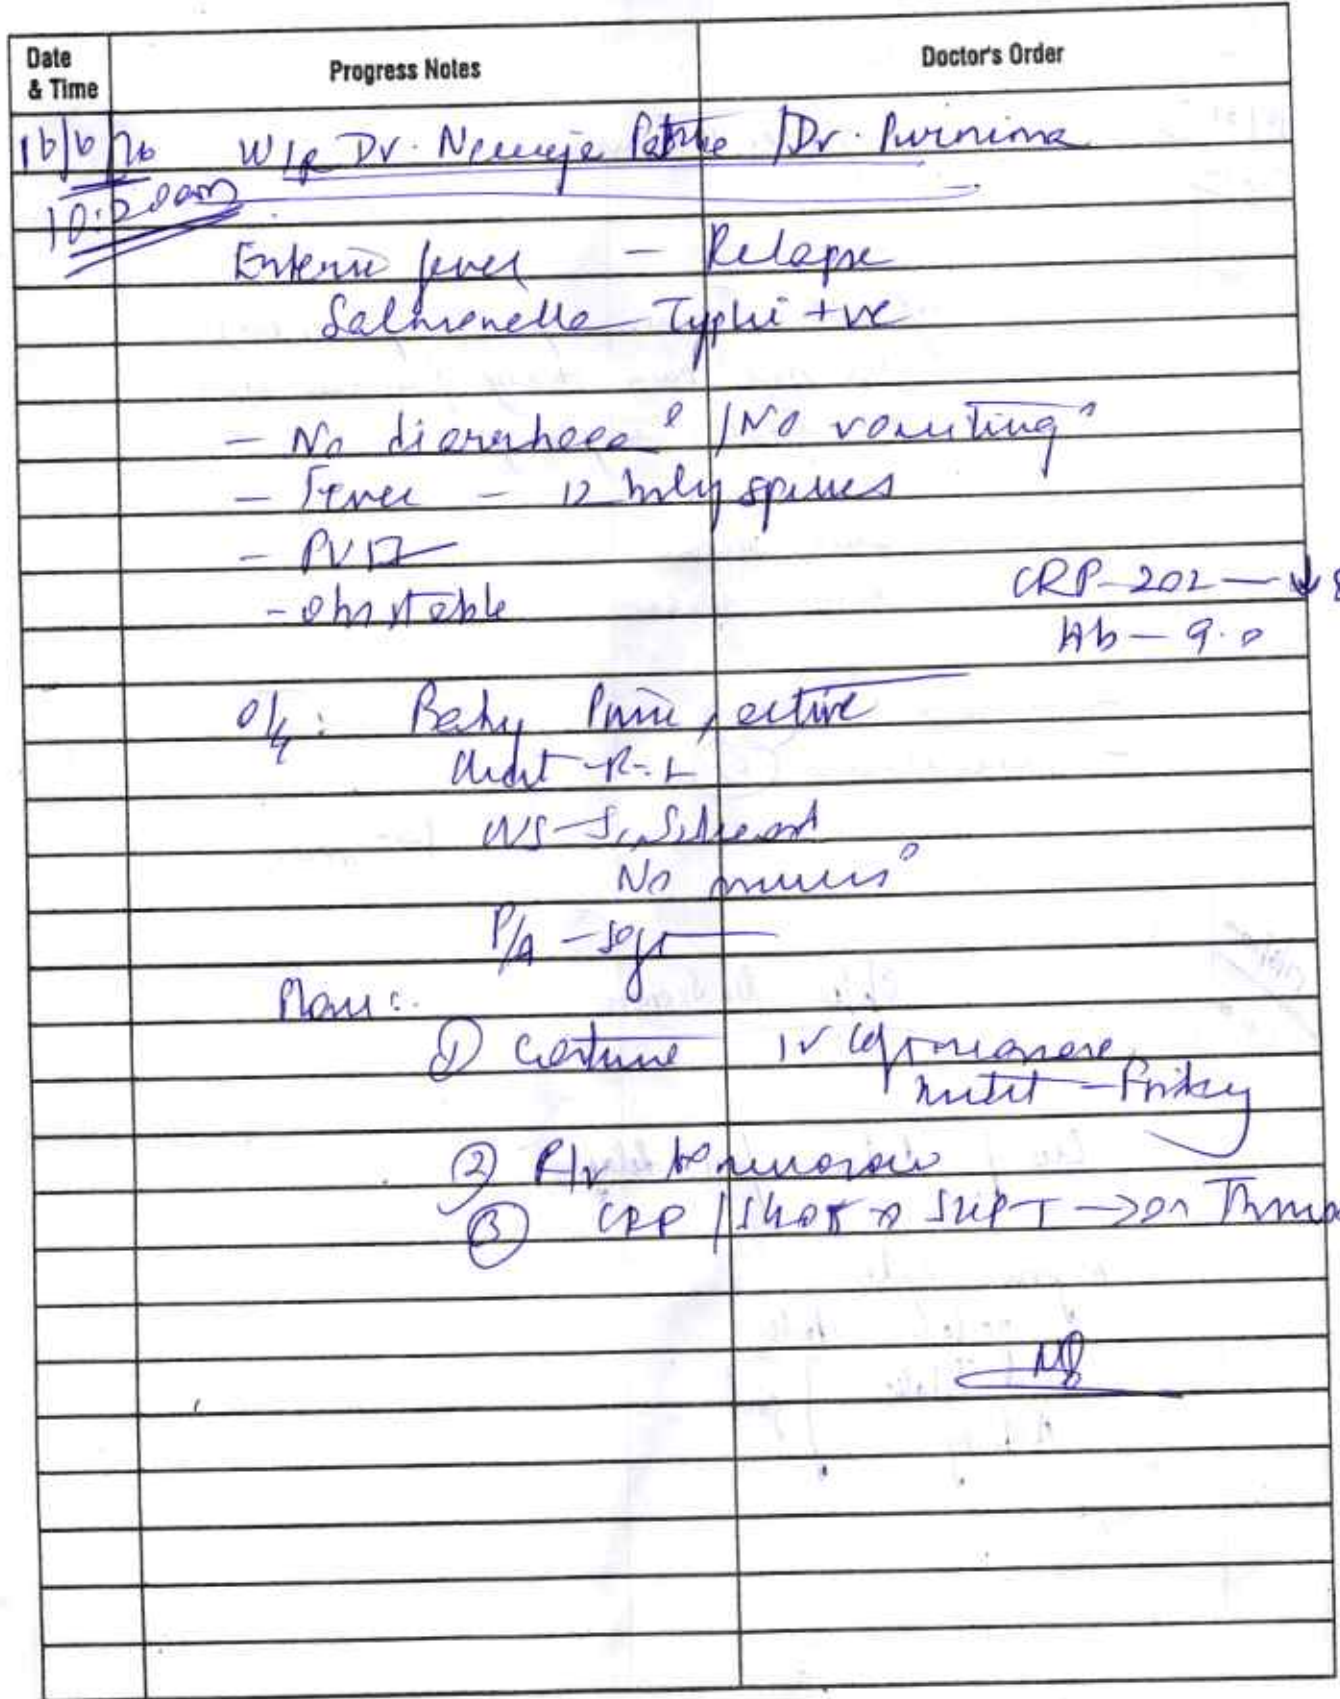 Date & Time
Progress Notes
Doctor's Order
16/6/26 W/R Dr. Neeraja / Dr. Purnima
10:20am
Enteric fever - Relapse
Salmonella Typhi +ve
- No diarrhoea / No vomiting
- Fever - 12 hrly spikes
- PU
CRP - 202 - ↓
- stable
Hb - 9.0
O/E: Baby Pink, active
Chest - R=L
CVS - S1, S2 heard
No murmur
P/A - soft
Plan:
① Continue IV Ceftriaxone
- Friday
② R/v tomorrow
③ CRP / SGOT SGPT → on